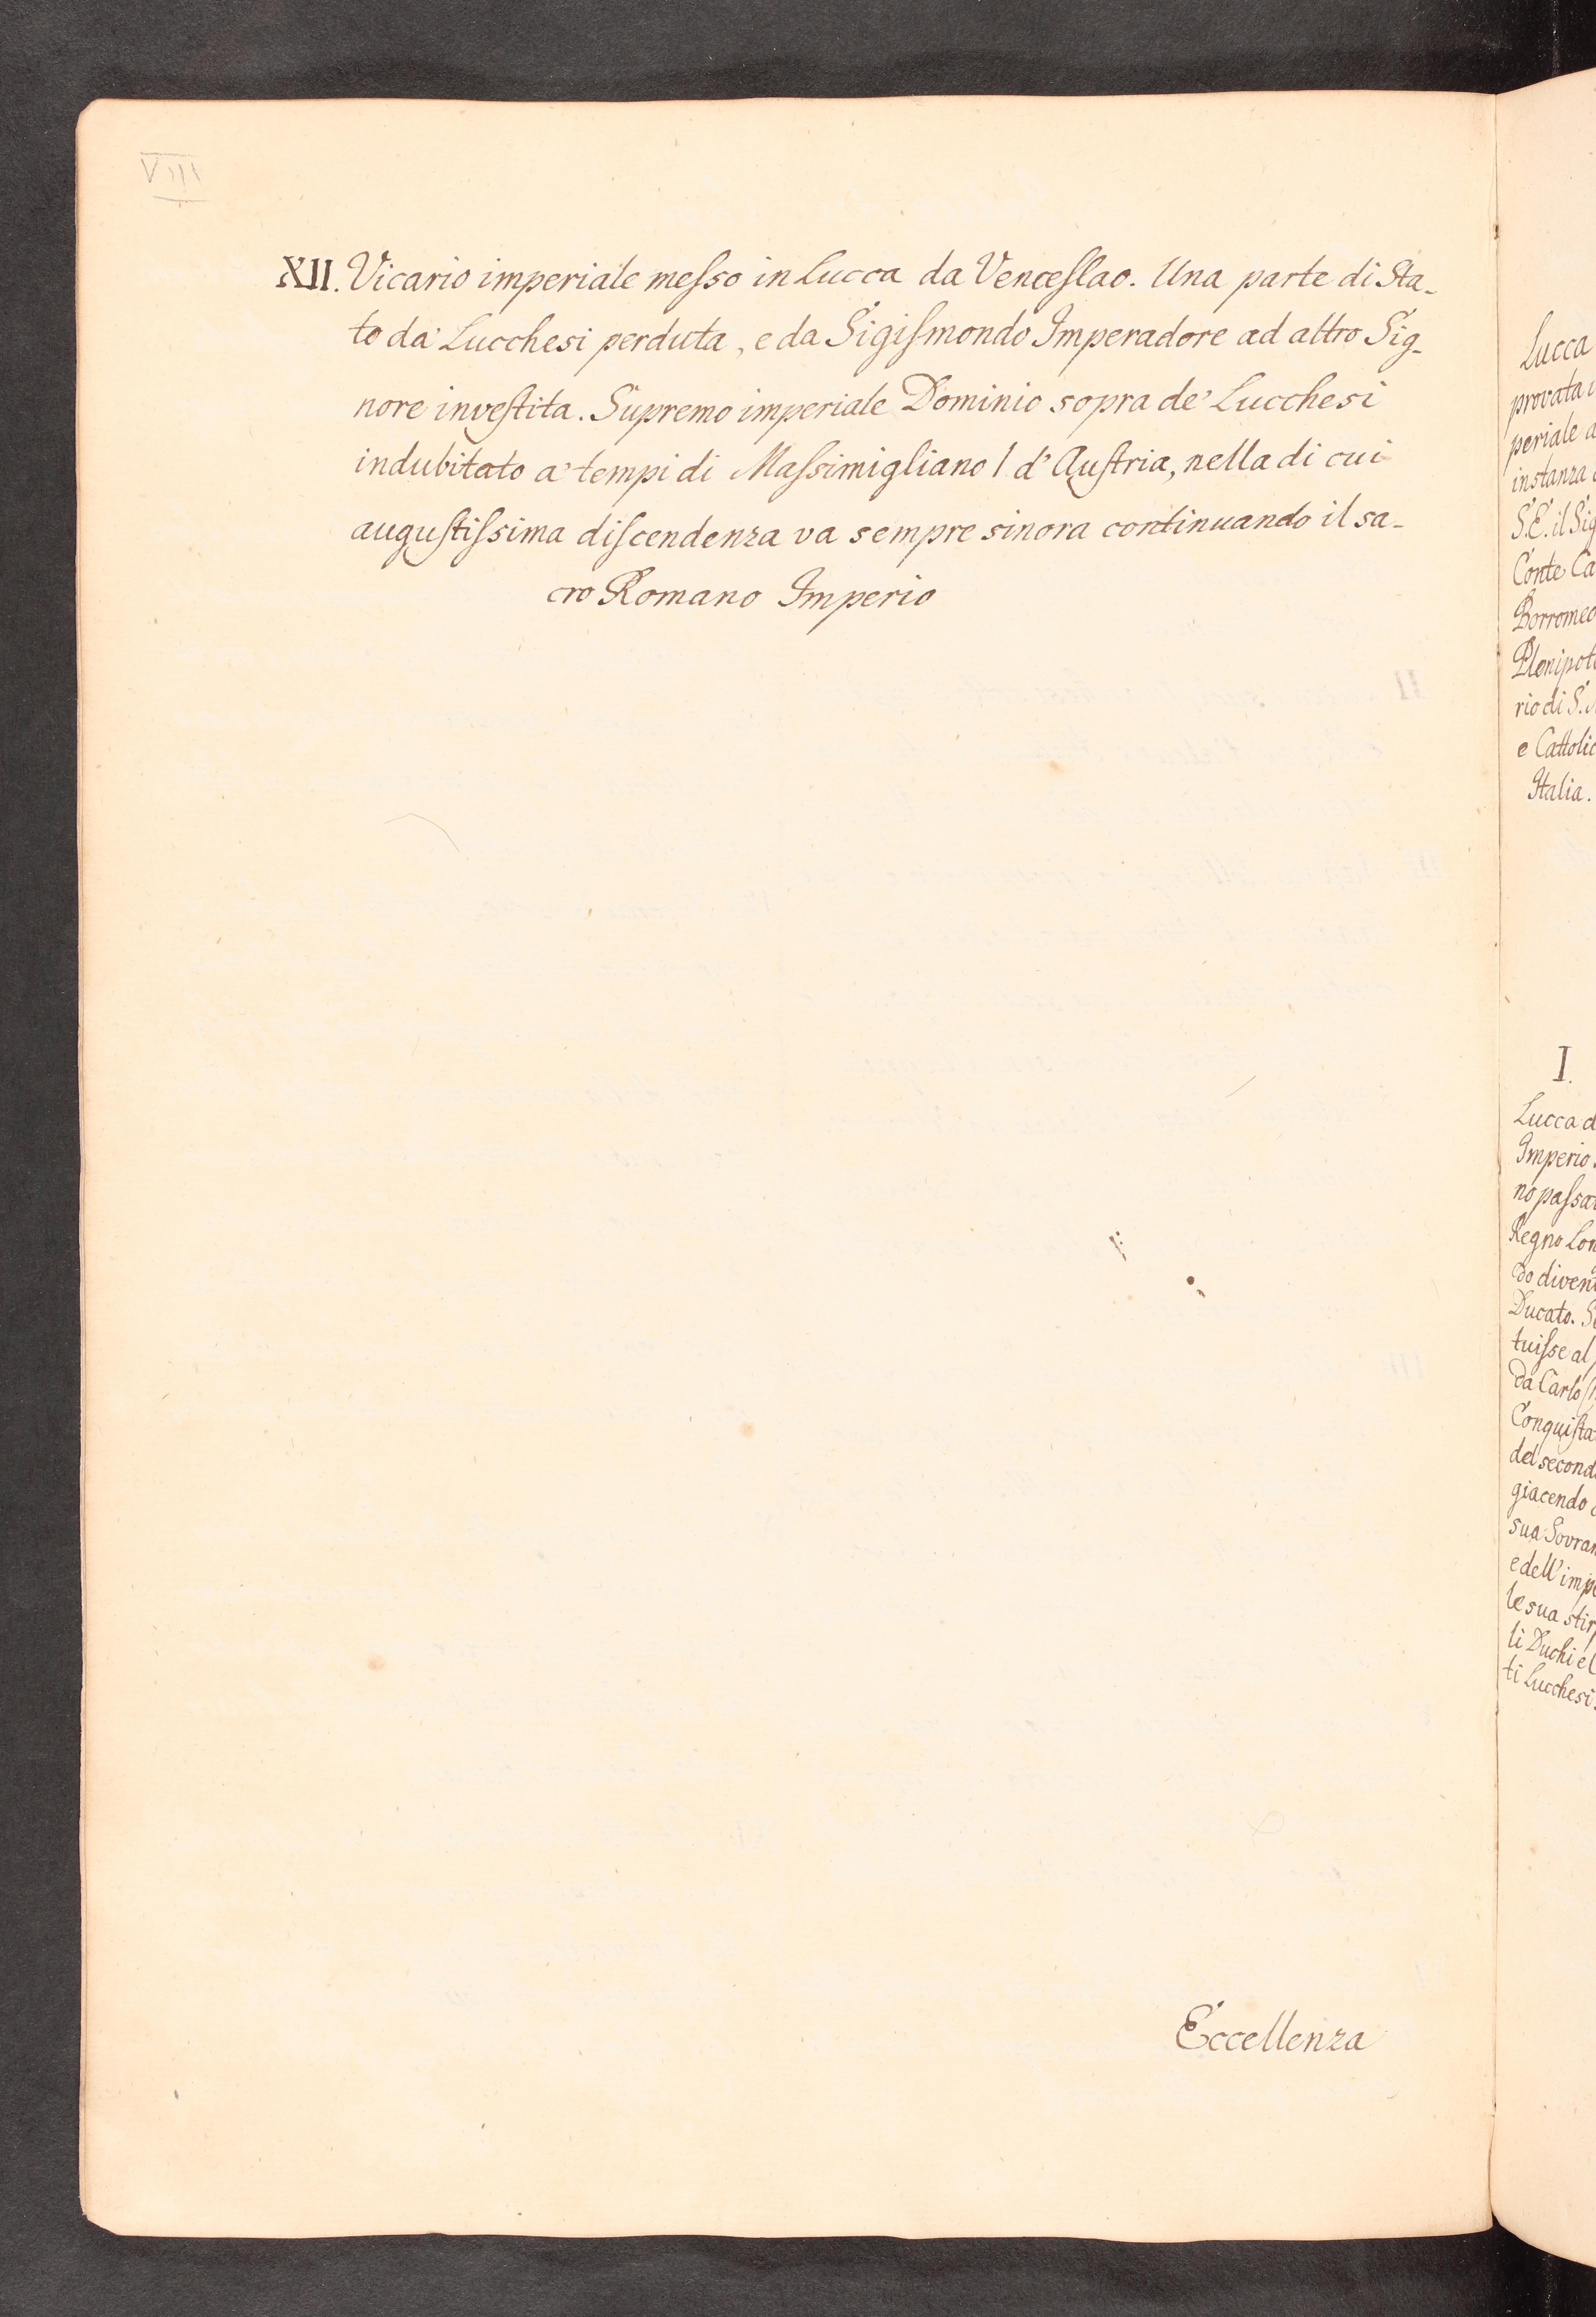 VIII
XII. Vicario imperiale meſso in Lucca da Venceſlao. Una parte di Sta-
to da' Lucchesi perduta, e da Sigiſmondo Imperadore ad altro Sig-
nore inveſtita. Supremo imperiale Dominio sopra de' Lucchesi
indubitato a' tempi di Maſsimigliano I d' Auſtria, nella di cui
auguſtiſsima diſcendenza va sempre sinora continuando il sa-
cro Romano Imperio
Eccellenza
Lucca
provata
periale
instanza
S.E. il Sig
Conte Ca
Borromeo
Plenipot
rio di S.
e Cattolic
Italia.
I.
Lucca d
Imperio
no paſsa
Regno Lon
do diven
Ducato.
tuiſse al
da Carlo
Conquiſta
del second
giacendo
sua Sovran
e dell' imp
le sua stir
li Duchi e
ti Lucchesi